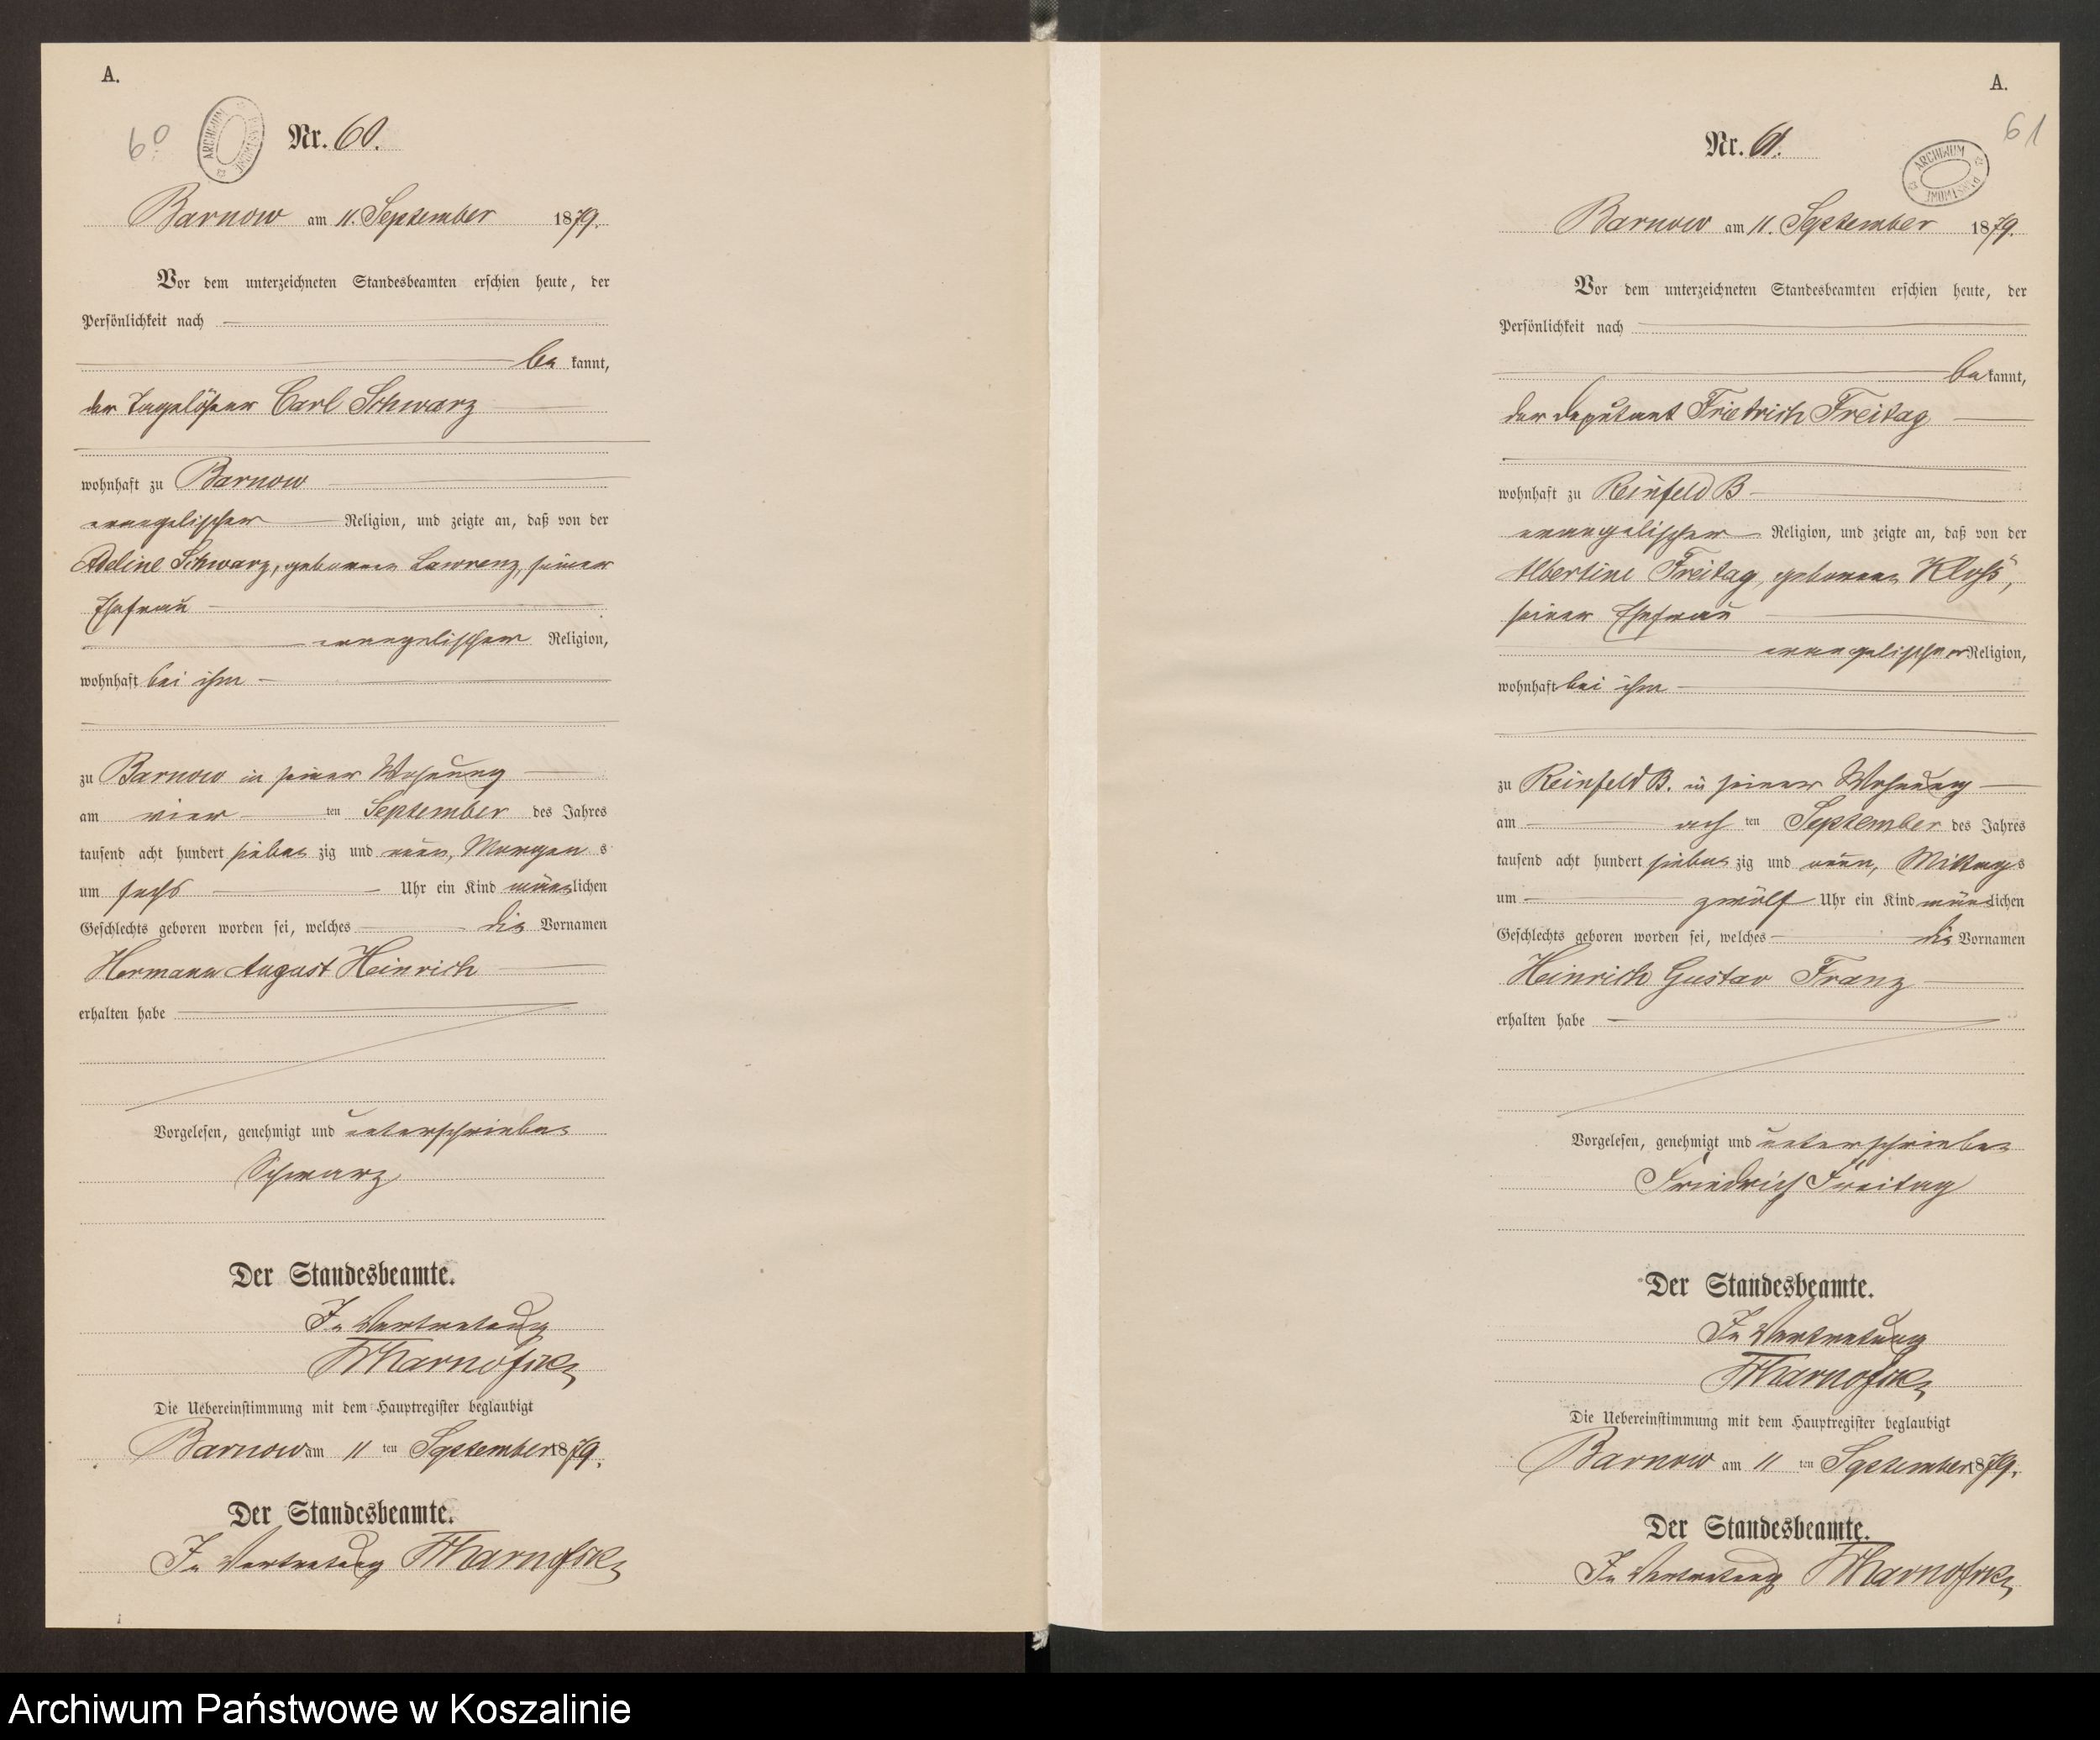 A.
60
ARCHIWUM PAŃSTWOWE
Nr. 60.
Barnow am 11. September 1879.
Vor dem unterzeichneten Standesbeamten erschien heute, der
Persönlichkeit nach
be kannt,
der Tagelöhner Carl Schwarz
wohnhaft zu Barnow
evangelischer Religion, und zeigte an, daß von der
Adeline Schwarz, geborenen Lawrenz, seiner
Ehefrau
evangelischer Religion,
wohnhaft bei ihm
zu Barnow in seiner Wohnung
am vier ten September des Jahres
tausend acht hundert sieben zig und neun, Morgen s
um sechs Uhr ein Kind männlichen
Geschlechts geboren worden sei, welches die Vornamen
Hermann August Heinrich
erhalten habe
Vorgelesen, genehmigt und unterschrieben
Schwarz
Der Standesbeamte.
In Vertretung
Die Uebereinstimmung mit dem Hauptregister beglaubigt
Barnow am 11 ten September 1879.
Der Standesbeamte.
In Vertretung
A.
61
ARCHIWUM PAŃSTWOWE
Nr. 61.
Barnow am 11. September 1879.
Vor dem unterzeichneten Standesbeamten erschien heute, der
Persönlichkeit nach
be kannt,
der Deputant Friedrich Freitag
wohnhaft zu Reinfeld B
evangelischer Religion, und zeigte an, daß von der
Albertine Freitag, geborenen Kloß,
seiner Ehefrau
evangelischer Religion,
wohnhaft bei ihm
zu Reinfeld B. in seiner Wohnung
am ach ten September des Jahres
tausend acht hundert sieben zig und neun, Mittags
um zwölf Uhr ein Kind männlichen
Geschlechts geboren worden sei, welches die Vornamen
Heinrich Gustav Franz
erhalten habe
Vorgelesen, genehmigt und unterschrieben
Friedrich Freitag
Der Standesbeamte.
In Vertretung
Die Uebereinstimmung mit dem Hauptregister beglaubigt
Barnow am 11 ten September 1879.
Der Standesbeamte.
In Vertretung
Archiwum Państwowe w Koszalinie